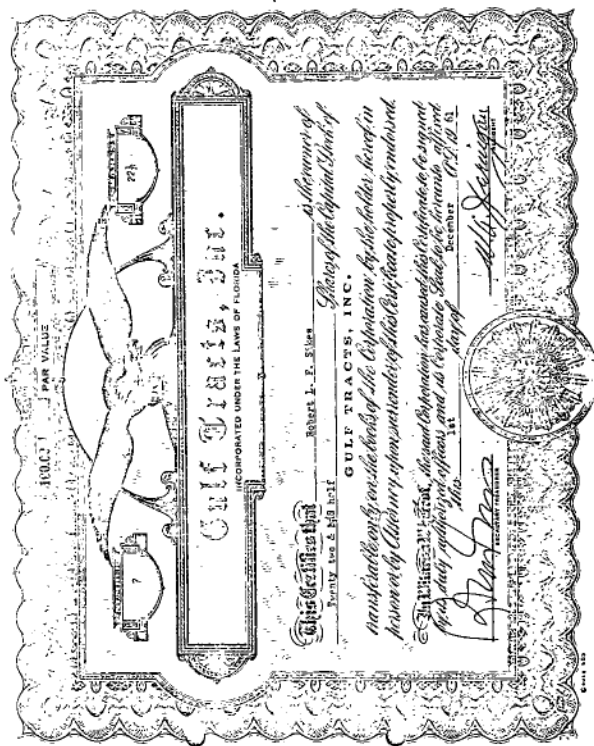 PAR VALUE
7
22½
Gulf Tracts, Inc.
INCORPORATED UNDER THE LAWS OF FLORIDA
This Certifies that Robert L. F. Sikes is the owner of
Twenty two & one half Shares of the Capital Stock of
GULF TRACTS, INC.
transferable only on the books of the Corporation by the holder hereof in
person or by Attorney upon surrender of this Certificate properly endorsed.
In Witness Whereof, the said Corporation has caused this Certificate to be signed
by its duly authorized officers and its Corporate Seal to be hereunto affixed
this 1st day of December A.D. 19 61
SECRETARY-TREASURER
PRESIDENT